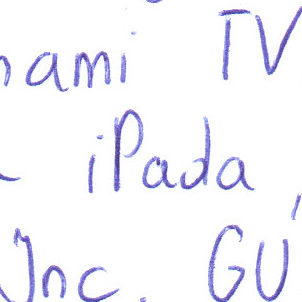 nami TV
iPada,
Inc. GU